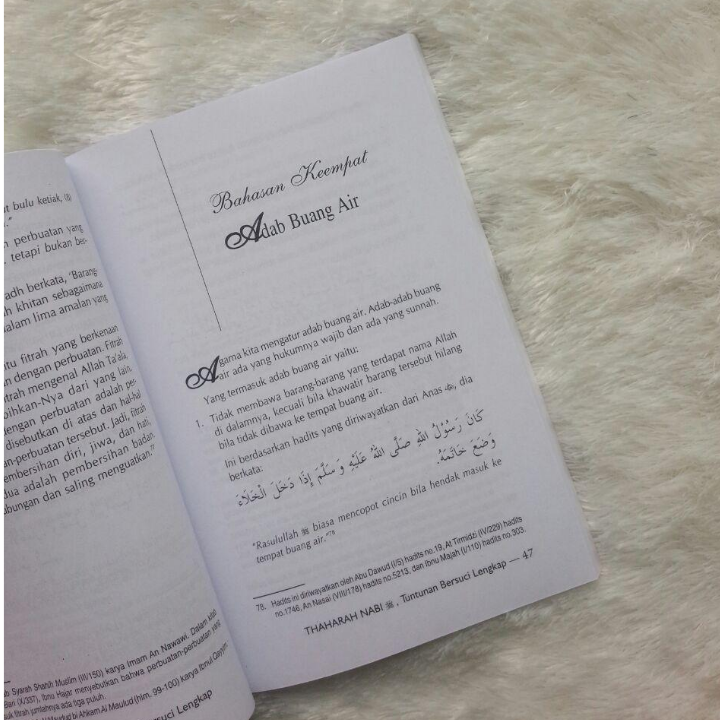 bulu ketiak,
perbuatan yang
tetapi bukan ber-
berkata, 'Barang-
khitan sebagaimana
lima amalan yang
fitrah yang berkenaan
dengan perbuatan. Fitrah
mengenal Allah Ta'ala,
-Nya dari yang lain,
dengan perbuatan adalah per-
disebutkan di atas dan hal-hal
perbuatan tersebut. Jadi, fitrah
diri, jiwa, dan hati,
adalah pembersihan badan
dan saling menguatkan."
Syarah Shahih Muslim (III/150) karya Imam An Nawawi. Dalam kitab
(X/337), Ibnu Hajar menyebutkan bahwa perbuatan-perbuatan yang
fitrah jumlahnya ada tiga puluh.
bi Ahkam Al Maulud (hlm. 99-100) karya Ibnul Qayyim.
Bersuci Lengkap
Bahasan Keempat
Adab Buang Air
Agama kita mengatur adab buang air. Adab-adab buang
air ada yang hukumnya wajib dan ada yang sunnah.
Yang termasuk adab buang air yaitu:
1. Tidak membawa barang-barang yang terdapat nama Allah
di dalamnya, kecuali bila khawatir barang tersebut hilang
bila tidak dibawa ke tempat buang air.
Ini berdasarkan hadits yang diriwayatkan dari Anas dia
berkata:
كَانَ رَسُوْلُ اللهِ صَلَّى اللهُ عَلَيْهِ وَسَلَّمَ إِذَا دَخَلَ الْخَلَاءَ
وَضَعَ خَاتَمَهُ.
"Rasulullah ﷺ biasa mencopot cincin bila hendak masuk ke
tempat buang air."78
78. Hadits ini diriwayatkan oleh Abu Dawud (I/5) hadits no.19, At Tirmidzi (IV/229) hadits
no.1746, An Nasai (VIII/178) hadits no.5213, dan Ibnu Majah (I/110) hadits no.303.
THAHARAH NABI ﷺ, Tuntunan Bersuci Lengkap — 47